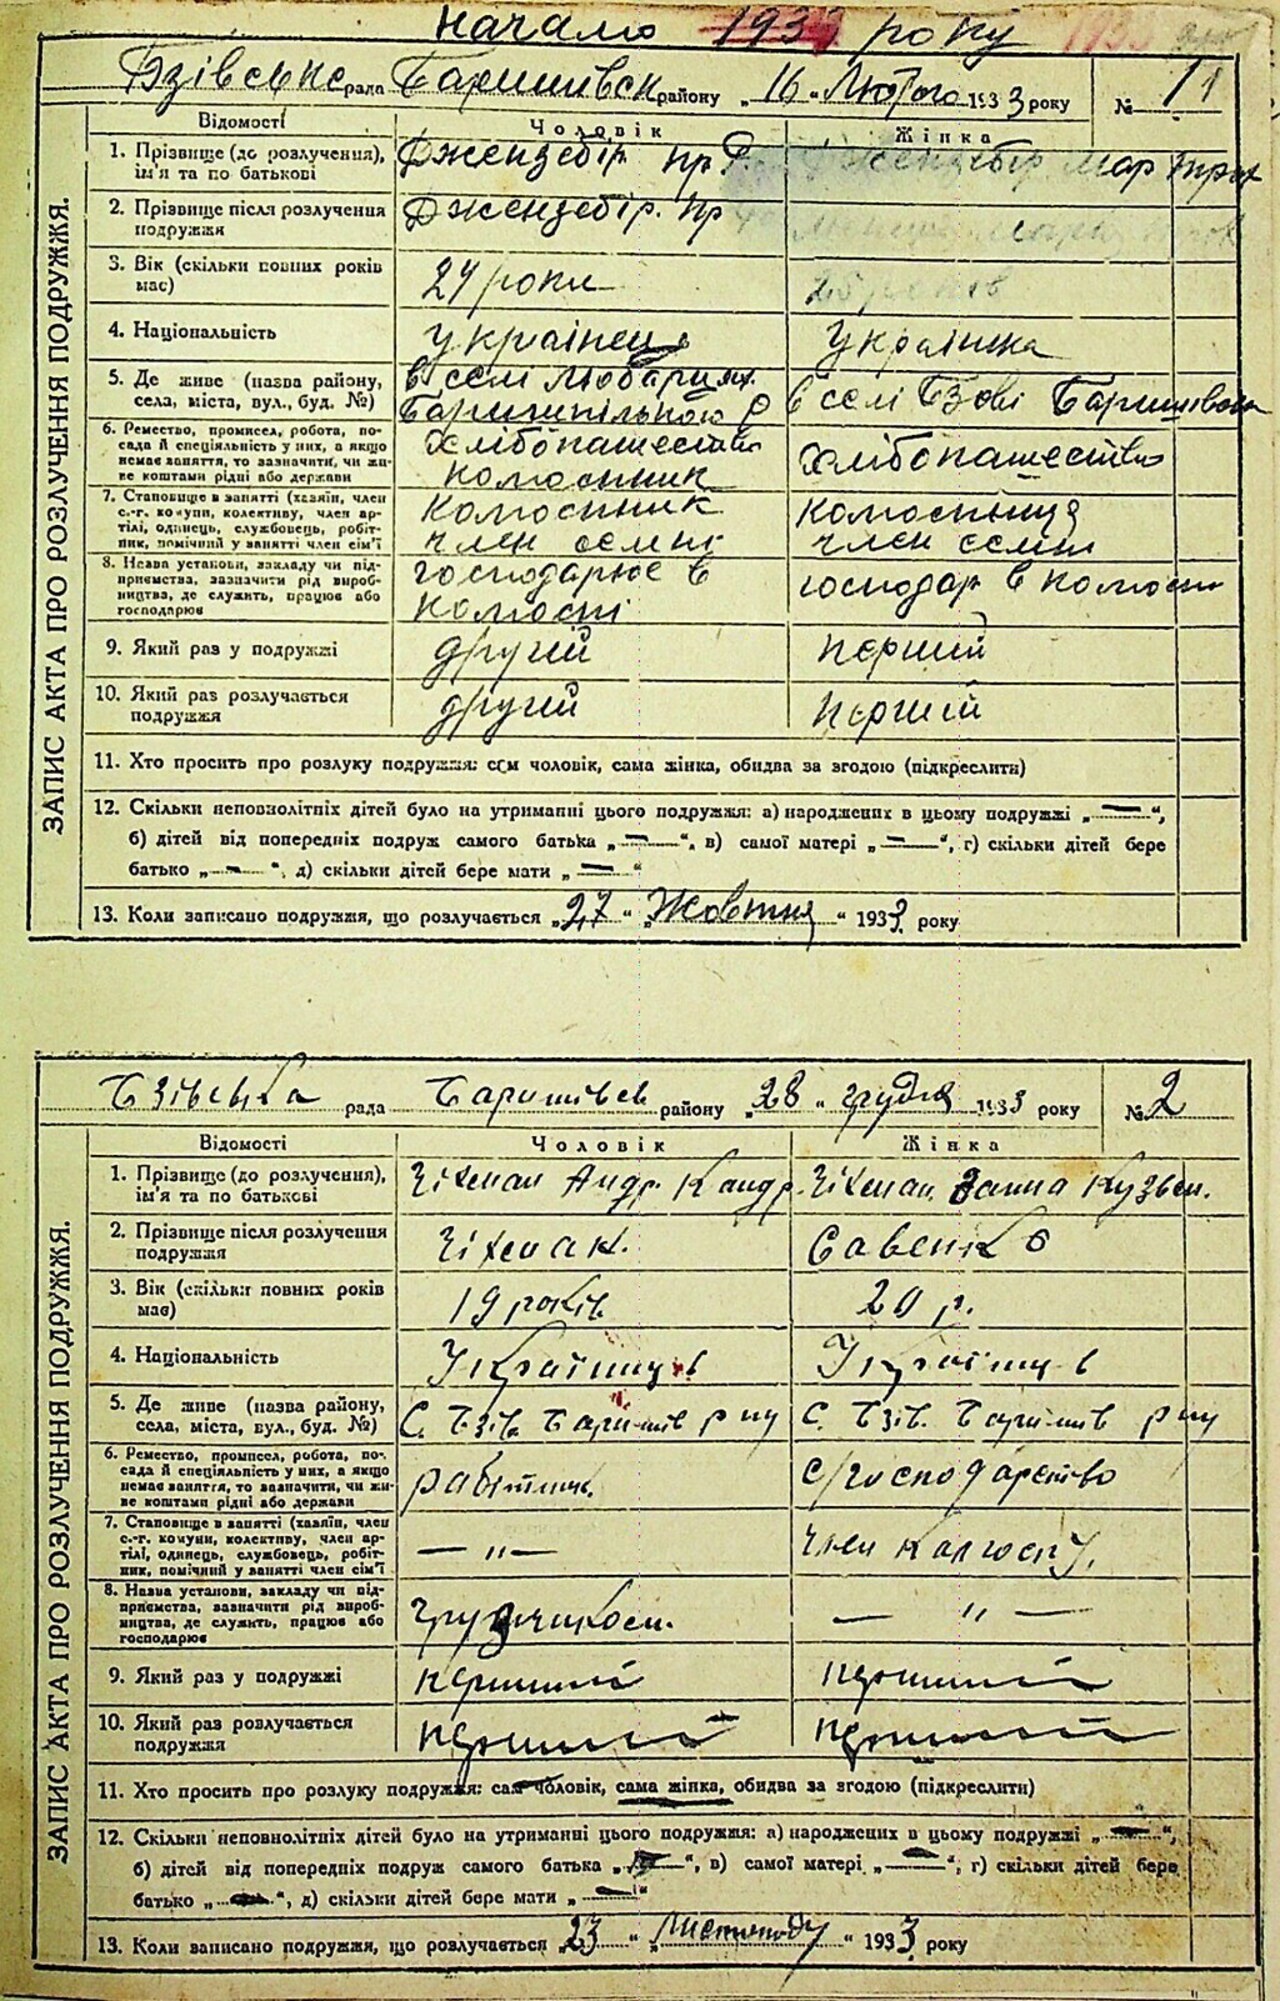 начало 1933 року
Бзівське рада Баришівск району „16 “ Лютого 1933 року № 1
ЗАПИС АКТА ПРО РОЗЛУЧЕННЯ ПОДРУЖЖЯ.
Відомості Чоловік Жінка
1. Прізвище (до розлучення), ім'я та по батькові Джендебір. пр
2. Прізвище після розлучення подружжя Джендебір. пр
3. Вік (скільки повних років має) 24 роки
4. Національність українець Українка
5. Де живе (назва району, села, міста, вул., буд. №) в селі Любарцях. Баришпільского р в селі Бзові Баришівськ
6. Ремество, промисел, робота, посада й спеціяльність у них, а якщо немає заняття, то зазначити, чи живе коштами рідні або держави хлібопашество колоспник хлібопашество
7. Становище в занятті (хазяїн, член с.-г. комуни, колективу, член артілі, одинець, службовець, робітник, помічний у занятті член сім'ї колоспник член семні колоспниця член семні
8. Назва установи, закладу чи підприємства, зазначити рід виробництва, де служить, працює або господарює господарює в колоспі господар в колоспі
9. Який раз у подружжі другий перший
10. Який раз розлучається подружжя другий перший
11. Хто просить про розлуку подружжя: сам чоловік, сама жінка, обидва за згодою (підкреслити)
12. Скільки неповнолітніх дітей було на утриманні цього подружжя: а) народжених в цьому подружжі „—“,
б) дітей від попередніх подруж самого батька „—“, в) самої матері „—“, г) скільки дітей бере
батько „—“, д) скільки дітей бере мати „—“
13. Коли записано подружжя, що розлучається „27 “ „Жовтня “ 1933 року
Бзівська рада Баришівськ району „28 “ грудня 1933 року № 2
ЗАПИС АКТА ПРО РОЗЛУЧЕННЯ ПОДРУЖЖЯ.
Відомості Чоловік Жінка
1. Прізвище (до розлучення), ім'я та по батькові Андр. Кандр. Ганна Кузьм.
2. Прізвище після розлучення подружжя Савенко
3. Вік (скільки повних років має) 19 років 20 р.
4. Національність Українців Українців
5. Де живе (назва району, села, міста, вул., буд. №) С. Бзів. Баришів р ну С. Бзів. Баришів р ну
6. Ремество, промисел, робота, посада й спеціяльність у них, а якщо немає заняття, то зазначити, чи живе коштами рідні або держави рабітник. с/господарство
7. Становище в занятті (хазяїн, член с.-г. комуни, колективу, член артілі, одинець, службовець, робітник, помічний у занятті член сім'ї — " — член Калгоспу.
8. Назва установи, закладу чи підприємства, зазначити рід виробництва, де служить, працює або господарює грузчиком. — " —
9. Який раз у подружжі перший перший
10. Який раз розлучається подружжя перший перший
11. Хто просить про розлуку подружжя: сам чоловік, сама жінка, обидва за згодою (підкреслити)
12. Скільки неповнолітніх дітей було на утриманні цього подружжя: а) народжених в цьому подружжі „—“,
б) дітей від попередніх подруж самого батька „—“, в) самої матері „—“, г) скільки дітей бере
батько „—“, д) скільки дітей бере мати „—“
13. Коли записано подружжя, що розлучається „23 “ „Листопаду “ 1933 року